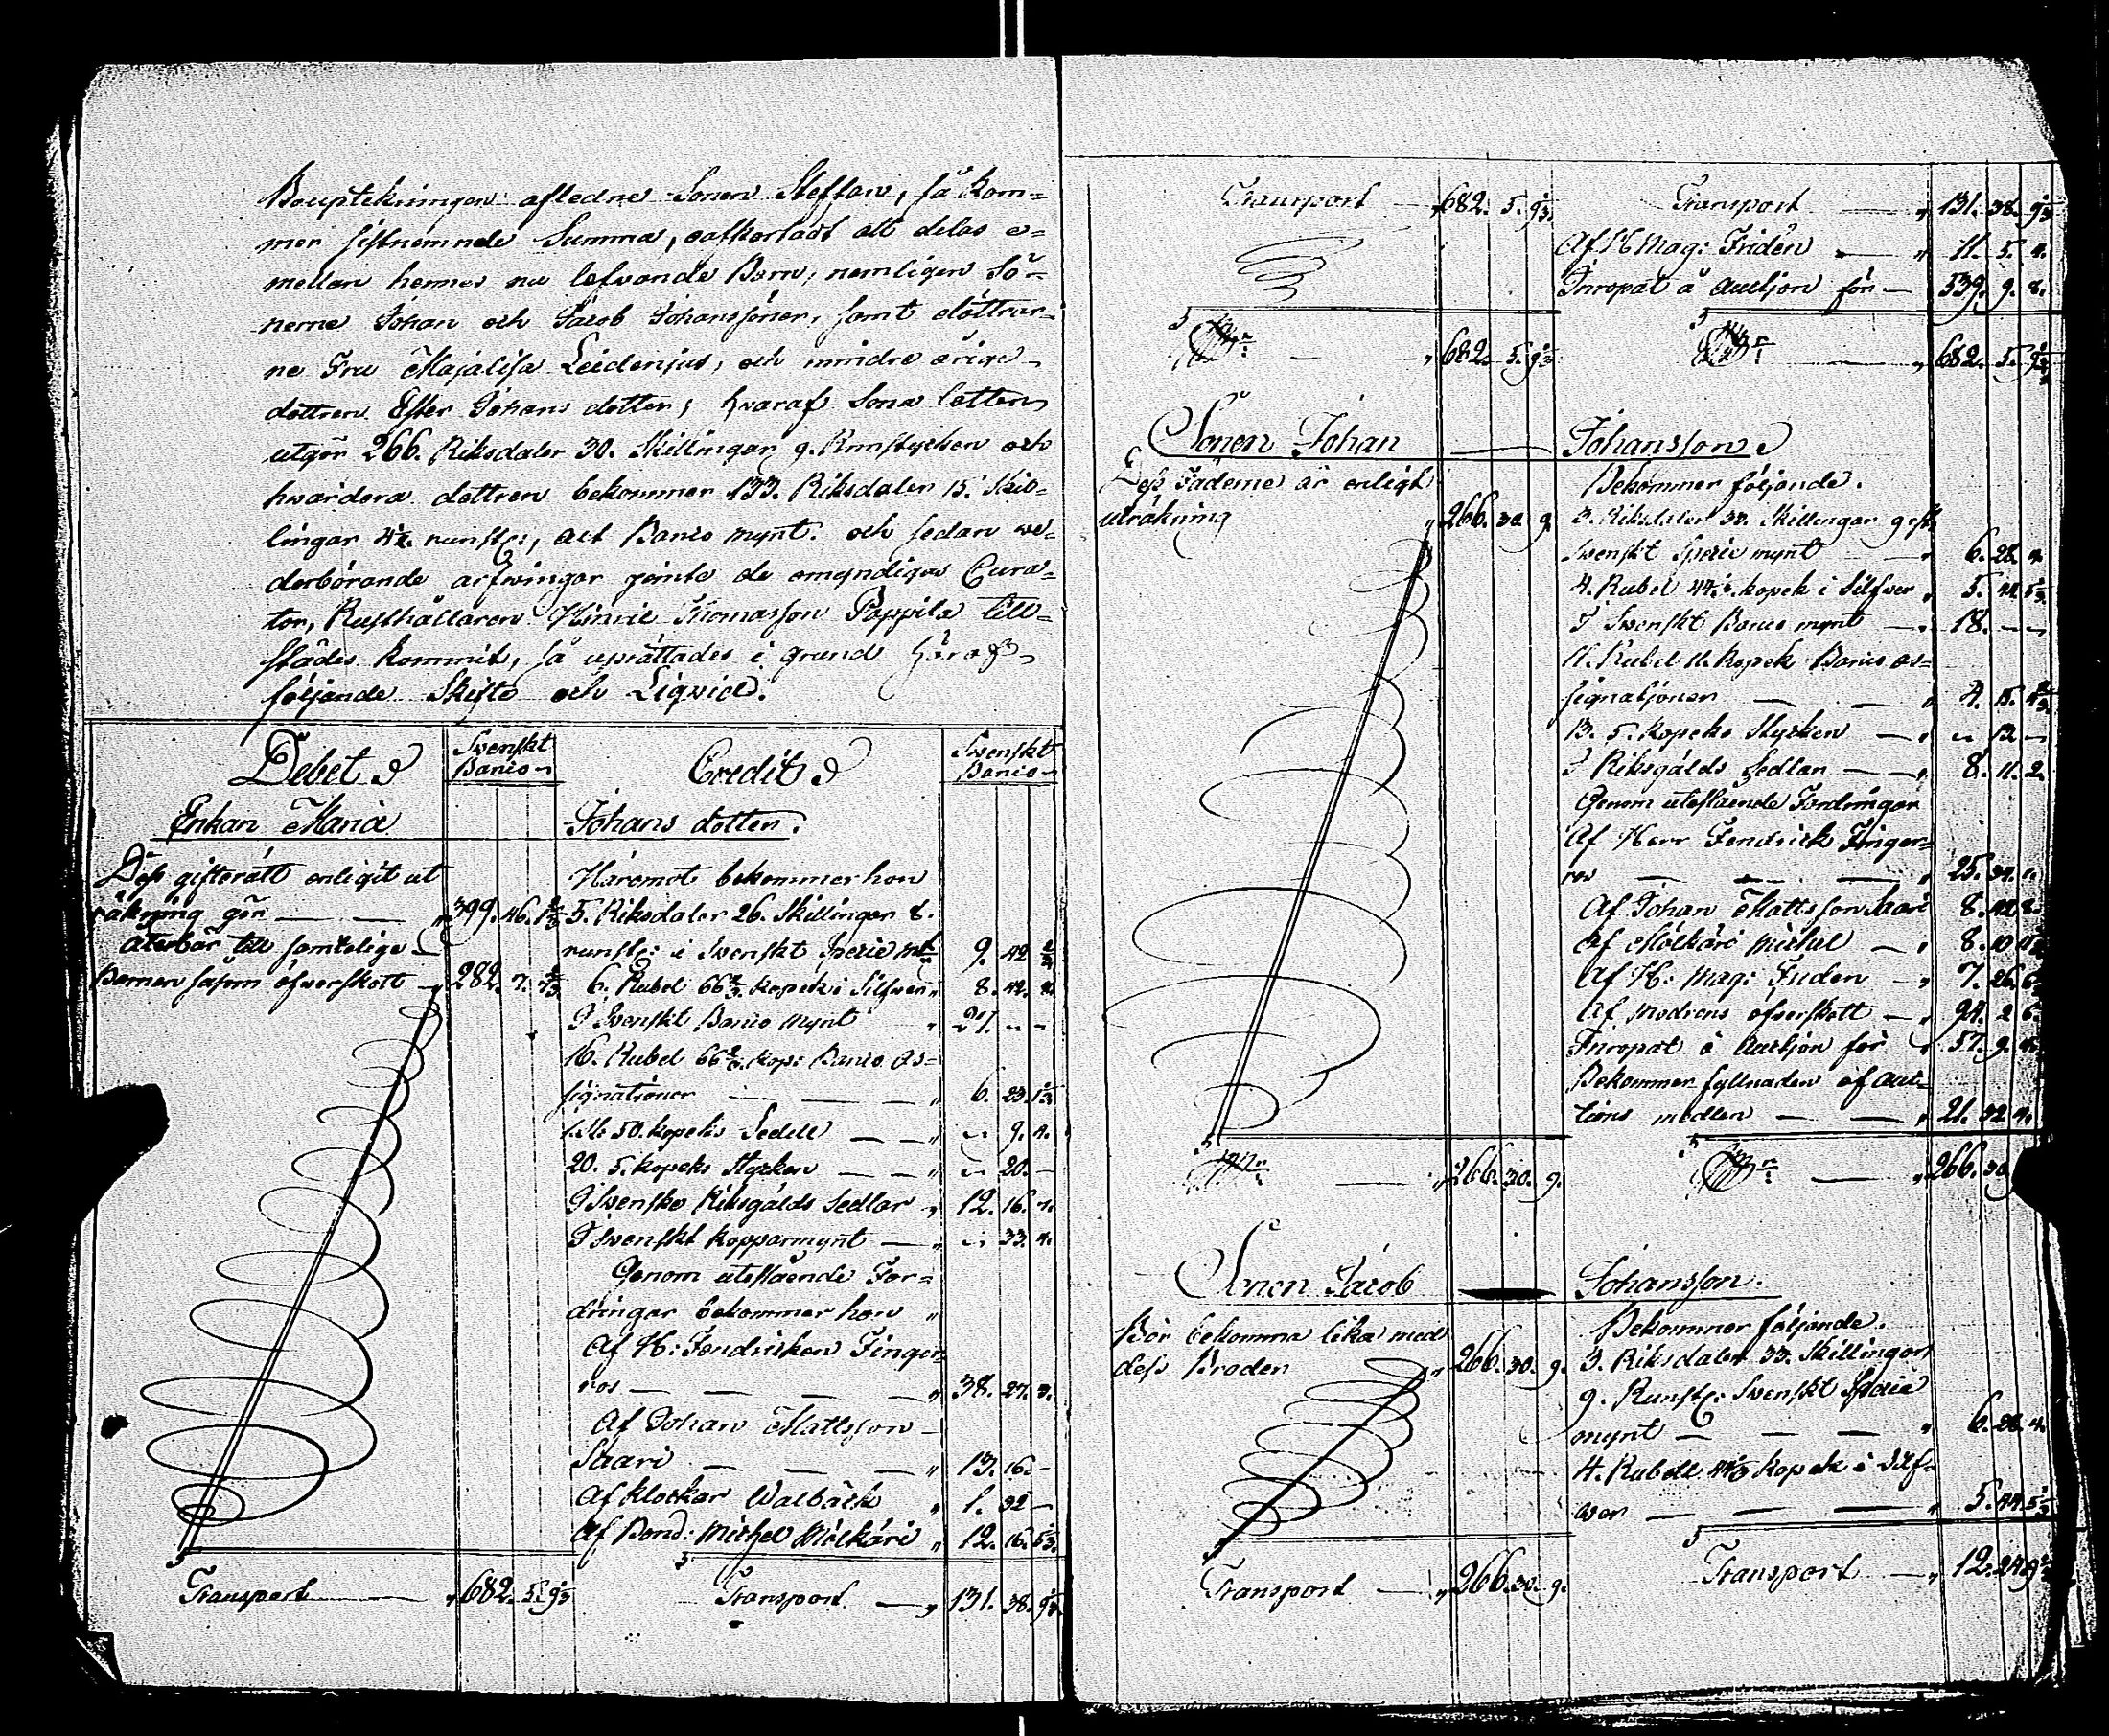 Bouptekningen afledne Sonen Steffan, så kom=
mer sistnemnde Summa, oafkortadt att delas e=
mellan hennes nu lefvande Barn, nemligen Sö=
nerne Johan och Jacob Johanssöner, samt döttrar=
ne Fru Majalisa Leidenius, och mindre årige
dottren Ester Johans dotter, hvaraf Sona lotten
utgör 266. Riksdaler 30. Skillingar 9. Runstycken och
hvardera dottren bekommer 133. Riksdaler 15. Skil=
lingar 4½. runst:, alt Banco mynt. och sedan ve=
derbörande arfvingar jemte de omyndigas Cura=
tor, Rusthållaren Hinric Thomasson Pappila till=
städes kommit, så uprättades i grund häraf
följande Skifte och Liqvid.
Debet Svenskt Banco Credit Svenskt Banco
Enkan Maria Johans dotter.
Dess gifterätt enligit ut
räkning gör — — " 399. 46.
Återbär till samtelige
Barnen såsom öfverskott " 282. 7.
Häremot bekommer hon
5. Riksdaler 26. Skillingar 8.
runst: i Svenskt Specie mt 9. 42
6. Rubel 66⅔ kopek i Silfver " 8. 42.
I Svenskt Banco Mynt " 27. — —
16. Rubel 66⅔ kop: Banco as=
signationer — — — " 6. 23. 1⅓
1. St: 50. kopeks Sedell — — " — 9. 4.
20. 5. kopeks stycken — — " — 20. —
I Svenska Riksgälds Sedlar " 12. 16. 4.
I Svenskt kopparmynt — " — 33. 4.
Genom utestående For=
dringar bekommer hon "
Af H: Fendricken Finger=
ros — — — — " 38. 27. 3.
Af Johan Mattsson
Saari — — — " 13. 16. —
Af klockar Walbäck " 1. 32 —
Af Bond: Michel Mölkäri " 12. 16. 5⅓.
Transport — " 682. 5. 9⅓ Transport — " 131. 38. 9⅓
Transport — " 682. 5. 9⅓ Transport — " 131. 38. 9⅓
Af H Mag: Friden — " 11. 5. 4.
Inropat å Auctjon för — 539. 9. 8.
— — " 682. 5. 9⅓ — " 682. 5. 9⅓
Sonen Johan — Johansson
Dess Fäderne är enligt
uträkning " 266. 30. 9.
Bekommer följande.
3. Riksdaler 33. Skillingar 9 rst
Svenskt Specie mynt — " 6. 28. 4
4. Rubel 44. kopek i Silfver " 5. 44. 5⅓.
I Svenskt Banco mynt — " 18. — —
11. Rubel 11. kopek Banco as=
signatjoner — — " 4. 15.
13. 5. kopeks Stycken — " — 13 —
I Riksgälds Sedlar — — " 8. 11. 2.
Genom utestående Fordringar
Af Herr Fendrick Finger=
ros — — — " 25. 34. 1.
Af Johan Mattsson Saari 8. 42. 8.
Af Mölkäri Michel — " 8. 10.
Af H: Mag: Friden — " 7. 26. 6.
Af Modrens öfverskott — " 94. 2. 6.
Inropat å Auctjon för " 57. 9. 4.
Bekommer fyllnaden af Auc=
tions medlen — — " 21. 32. 4.
— " 266. 30. 9. — " 266. 30
Sonen Jacob — Johansson.
Bör bekomma lika med
dess Broder " 266. 30. 9.
Bekommer följande.
3. Riksdaler 33. Skillingar
9. Runst: Svenskt Specie
mynt — — — " 6. 28. 4.
4. Rubell 44. kopek i Silf=
ver — — — " 5. 44. 5⅓
Transport — " 266. 30. 9. Transport — " 12. 24. 9⅓